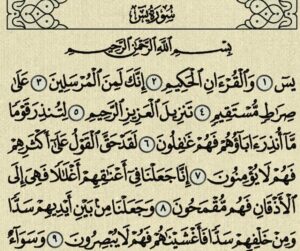 سُورَةُ يسٓ
بِسْمِ اللَّهِ الرَّحْمَٰنِ الرَّحِيمِ
يسٓ ١ وَالْقُرْءَانِ الْحَكِيمِ ٢ إِنَّكَ لَمِنَ الْمُرْسَلِينَ ٣ عَلَىٰ
صِرَٰطٍ مُّسْتَقِيمٍ ٤ تَنزِيلَ الْعَزِيزِ الرَّحِيمِ ٥ لِتُنذِرَ قَوْمًا
مَّا أُنذِرَ ءَابَاؤُهُمْ فَهُمْ غَٰفِلُونَ ٦ لَقَدْ حَقَّ الْقَوْلُ عَلَىٰ أَكْثَرِهِمْ
فَهُمْ لَا يُؤْمِنُونَ ٧ إِنَّا جَعَلْنَا فِي أَعْنَٰقِهِمْ أَغْلَٰلًا فَهِيَ إِلَى
الْأَذْقَانِ فَهُم مُّقْمَحُونَ ٨ وَجَعَلْنَا مِن بَيْنِ أَيْدِيهِمْ سَدًّا
وَمِنْ خَلْفِهِمْ سَدًّا فَأَغْشَيْنَٰهُمْ فَهُمْ لَا يُبْصِرُونَ ٩ وَسَوَاءٌ